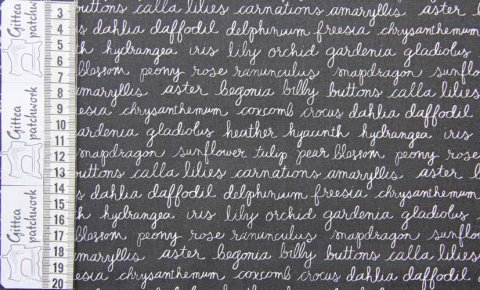 buttons calla lilies carnations amaryllis aster
s dahlia daffodil delphinium freesia chrysanthemum
h hydrangea iris lily orchid gardenia gladiolus
blossom peony rose ranunculus snapdragon sunflo
maryllis aster begonia billy buttons calla lilies
esia chrysanthemum coxcomb crocus dahlia daffodil
ardenia gladiolus heather hyacinth hydrangea iris
snapdragon sunflower tulip pear blossom peony rose
buttons calla lilies carnations amaryllis aster
s dahlia daffodil delphinium freesia chrysanthemum
h hydrangea iris lily orchid gardenia gladiolus
blossom peony rose ranunculus snapdragon sunflo
maryllis aster begonia billy buttons calla lilies
esia chrysanthemum coxcomb crocus dahlia daffodil
Gittea patchwork
Gittea patchwork
Gittea patchwork
3
4
5
6
7
8
9
10
11
12
13
14
15
16
17
18
19
20